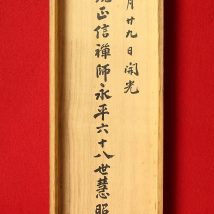 月廿九日開光
正信禅師永平六十八世慧昭